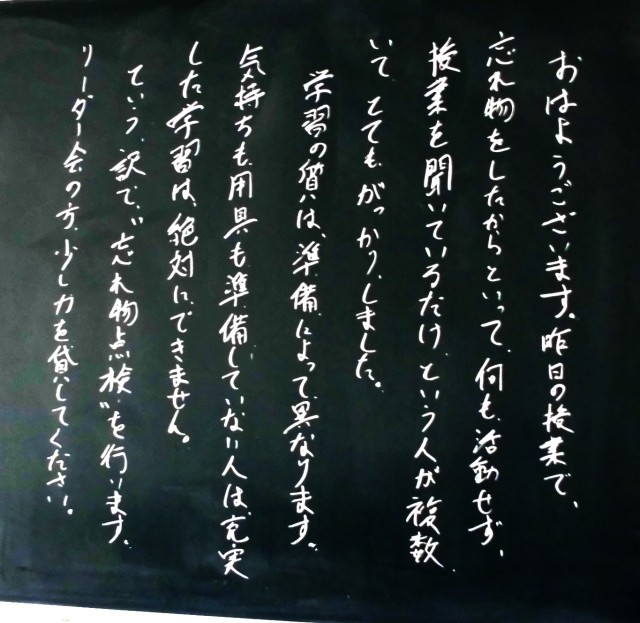 おはようございます。昨日の授業で、
忘れ物をしたからといって、何も活動せず、
授業を聞いているだけという人が複数
いて、とてもがっかりしました。
学習の質は、準備によって異なります。
気持ちも用具も準備していない人は、充実
した学習は、絶対にできません。
ていう訳で、“忘れ物点検”を行います。
リーダー会の方、少し力を貸してください。